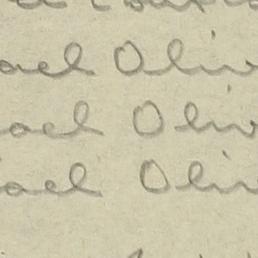 ael Oliv
ael Oliv
ael Oliv